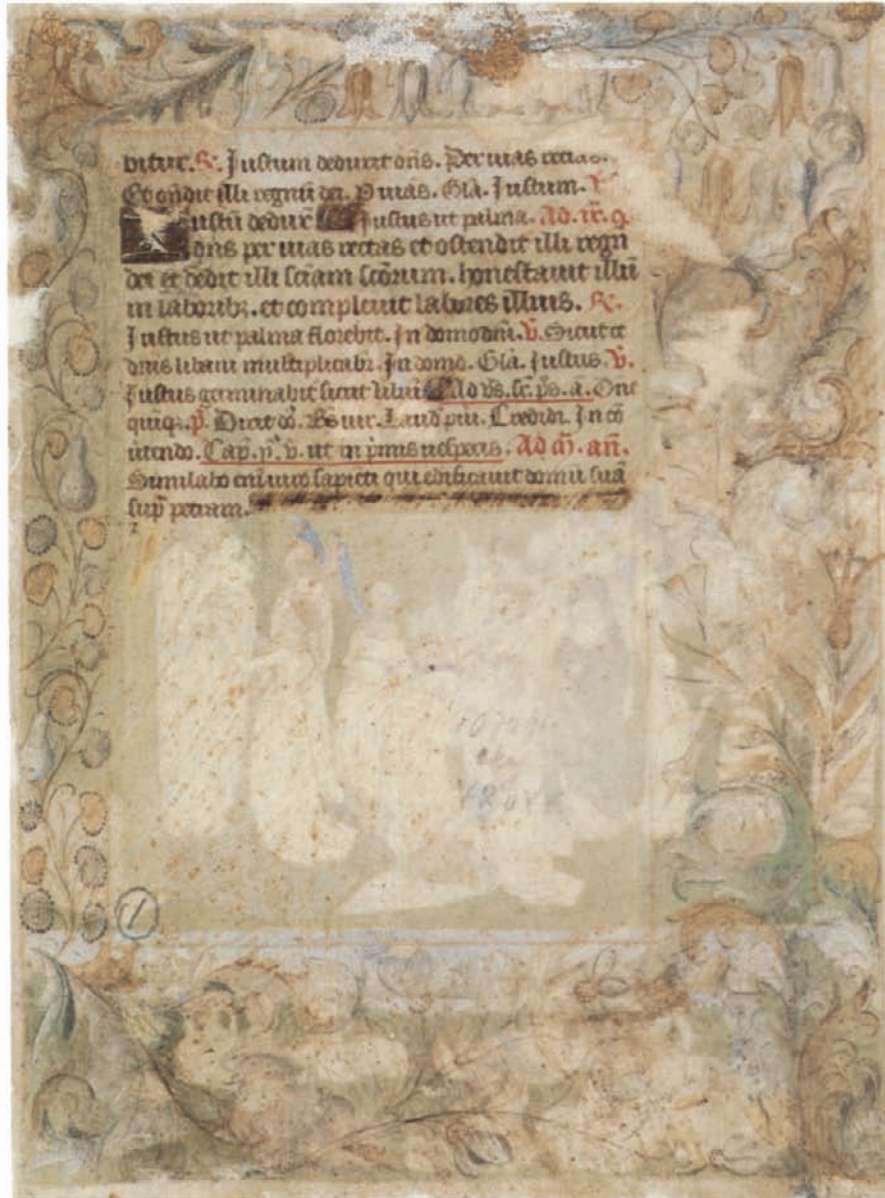 vitur. ℟. Justum deduxit dn̄s. Per vias rectas.
Et on̄dit illi regnū dei. P vias. Glā. Justum. ℣
Justū dedux Justus ut palma. Ad. ix. q.
dn̄s per vias rectas et ostendit illi regn
dei et dedit illi sciam scōrum. honestavit illū
in laboribꝫ. et complevit labores illius. ℟.
Justus ut palma florebit. In domo dn̄i. ℣. Sicut ce
drus libani multiplicabr. In domo. Glā. Justus. ℣.
Justus germinabit sicut liliū Ad vs. sc. ps. a. Dn̄e
quiqꝫ. p̄. Dixit dn̄s. Bs vir. Laud pm. Credidi. In cō
vtendo. Cap. p. v. ut in p̄mis vesperis. Ad m̄. an̄.
Similabo eū viro sapiēti qui edificavit domū suā
sup̄ petram.
1